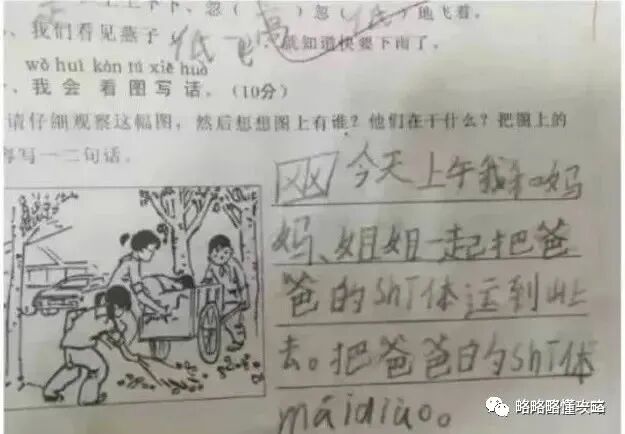 上上下下、忽（高）忽（低）地飞着。
、我们看见燕子低飞，就知道快要下雨了。
wǒ huì kàn tú xiě huà
、我会看图写话。(10分)
请仔细观察这幅图，然后想想图上有谁？他们在干什么？把图上的
容写一二句话。
今天上午我和妈
妈、姐姐一起把爸
爸的ShT体运到山上
去。把爸爸的ShT体
máidiào。
略略略懂攻略